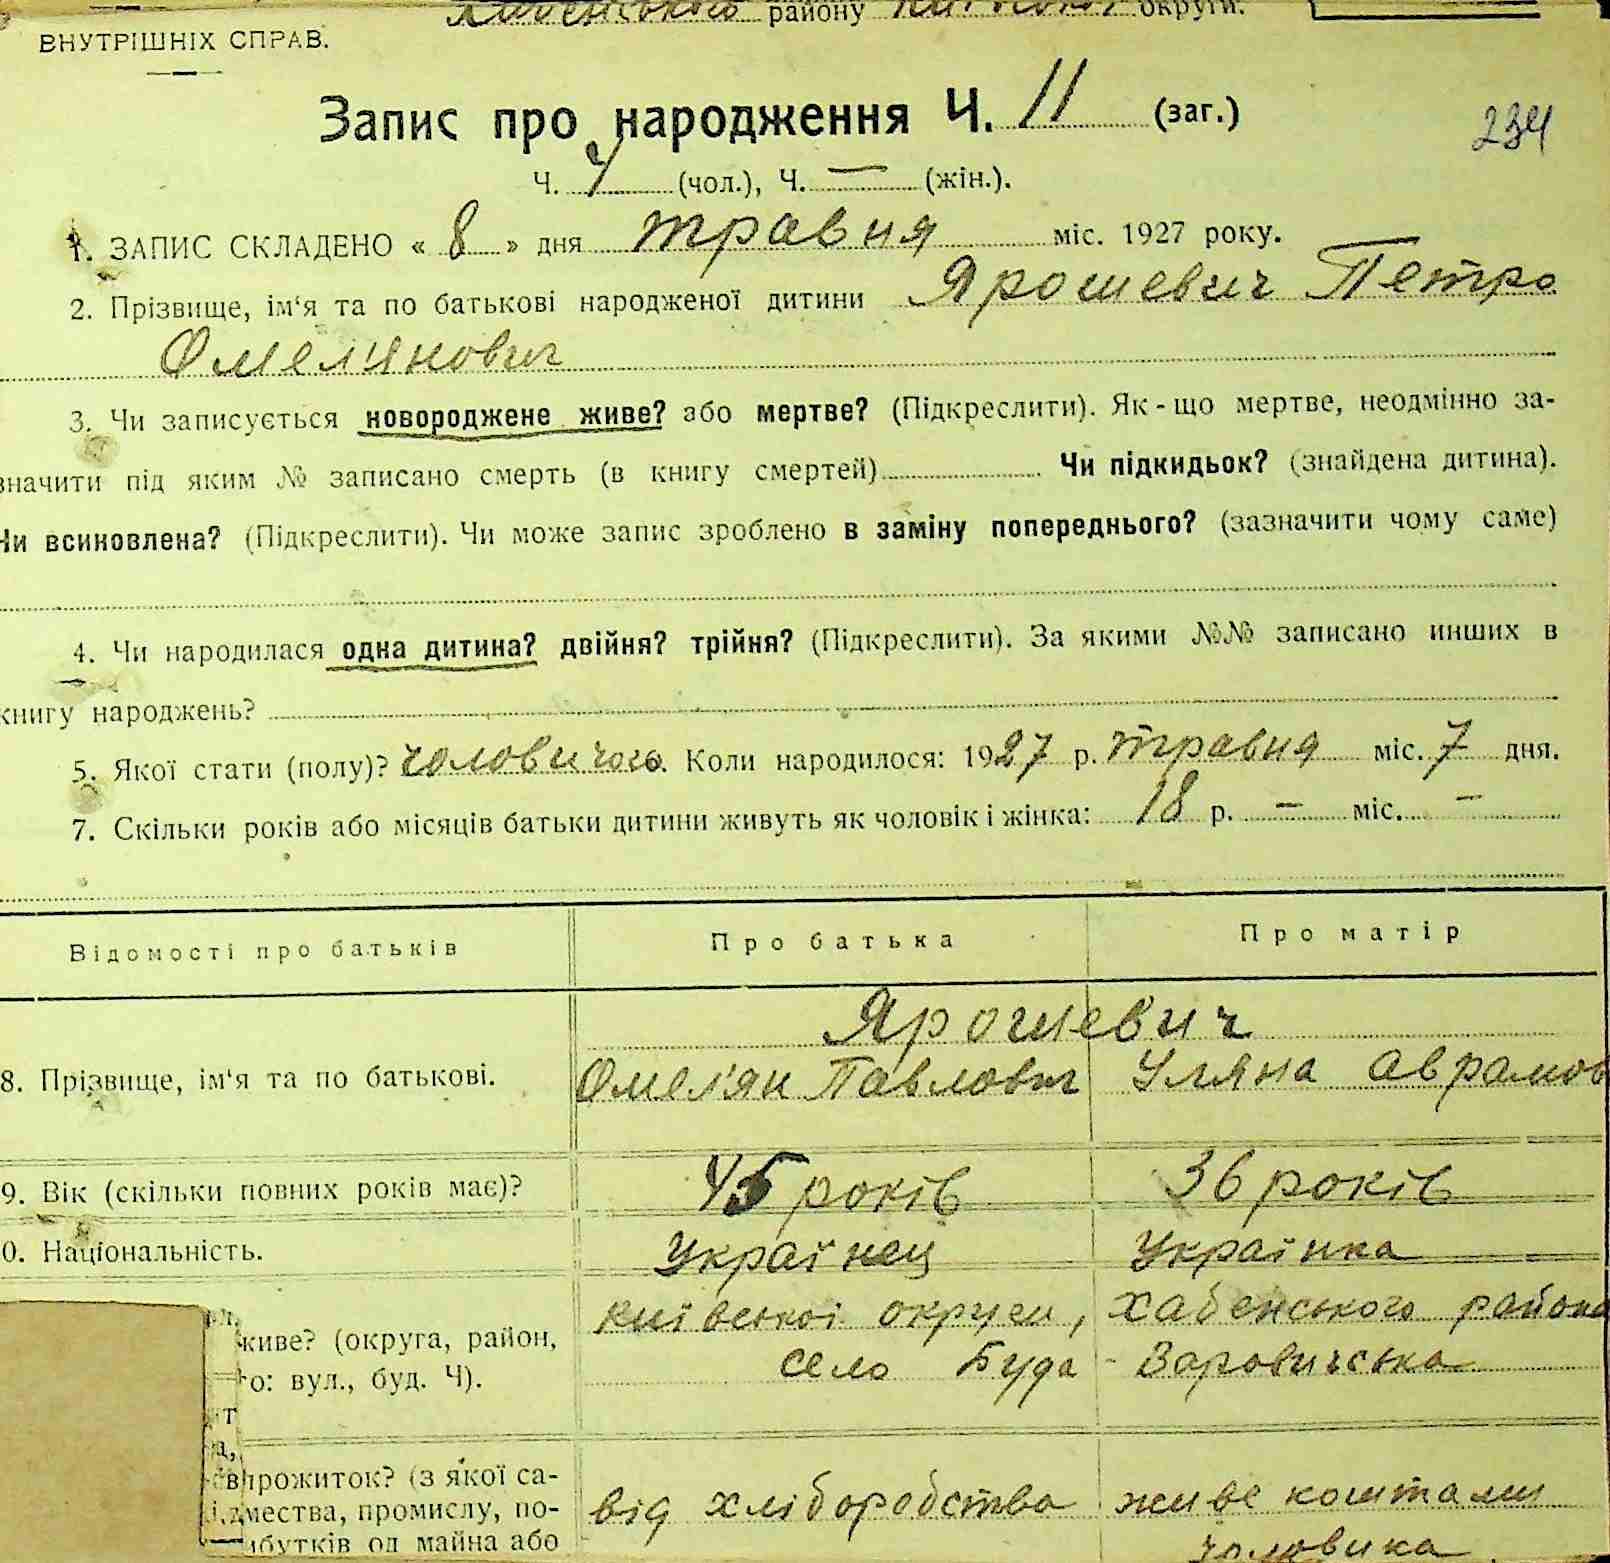 району округи.
ВНУТРІШНІХ СПРАВ.
Запис про народження Ч. 11 (заг.)
234
Ч. 4 (чол.), Ч. — (жін.).
1. ЗАПИС СКЛАДЕНО « 8 » дня травня міс. 1927 року.
2. Прізвище, ім'я та по батькові народженої дитини Ярошевич Петро
Омел'янович
3. Чи записується новороджене живе? або мертве? (Підкреслити). Як-що мертве, неодмінно за-
значити під яким № записано смерть (в книгу смертей) Чи підкидьок? (знайдена дитина).
Чи всиновлена? (Підкреслити). Чи може запис зроблено в заміну попереднього? (зазначити чому саме)
4. Чи народилася одна дитина? двійня? трійня? (Підкреслити). За якими №№ записано инших в
книгу народжень?
5. Якої стати (полу)? чоловичого. Коли народилося: 1927 р. травня міс. 7 дня.
7. Скільки років або місяців батьки дитини живуть як чоловік і жінка: 18 р. — міс. —
Відомості про батьків Про батька Про матір
Ярошевич
8. Прізвище, ім'я та по батькові. Омел'ян Павлович Уляна Аврамов
9. Вік (скільки повних років має)? 45 років 36 років
0. Національність. Українец Українка
живе? (округа, район, київської округи, хабенського района
о: вул., буд. Ч). село Буда - Воровичська
прожиток? (з якої са-
мества, промислу, по- від хліборобства живе коштами
бутків од майна або чоловика